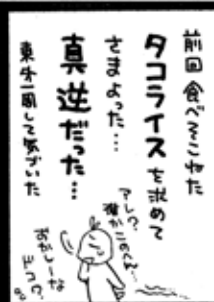 前回食べそこねた
タコライスを求めて
さまよった…
真逆だった…
東外一周して気づいた
アレ?
確かこのへん…
おかしーな
ドコ?